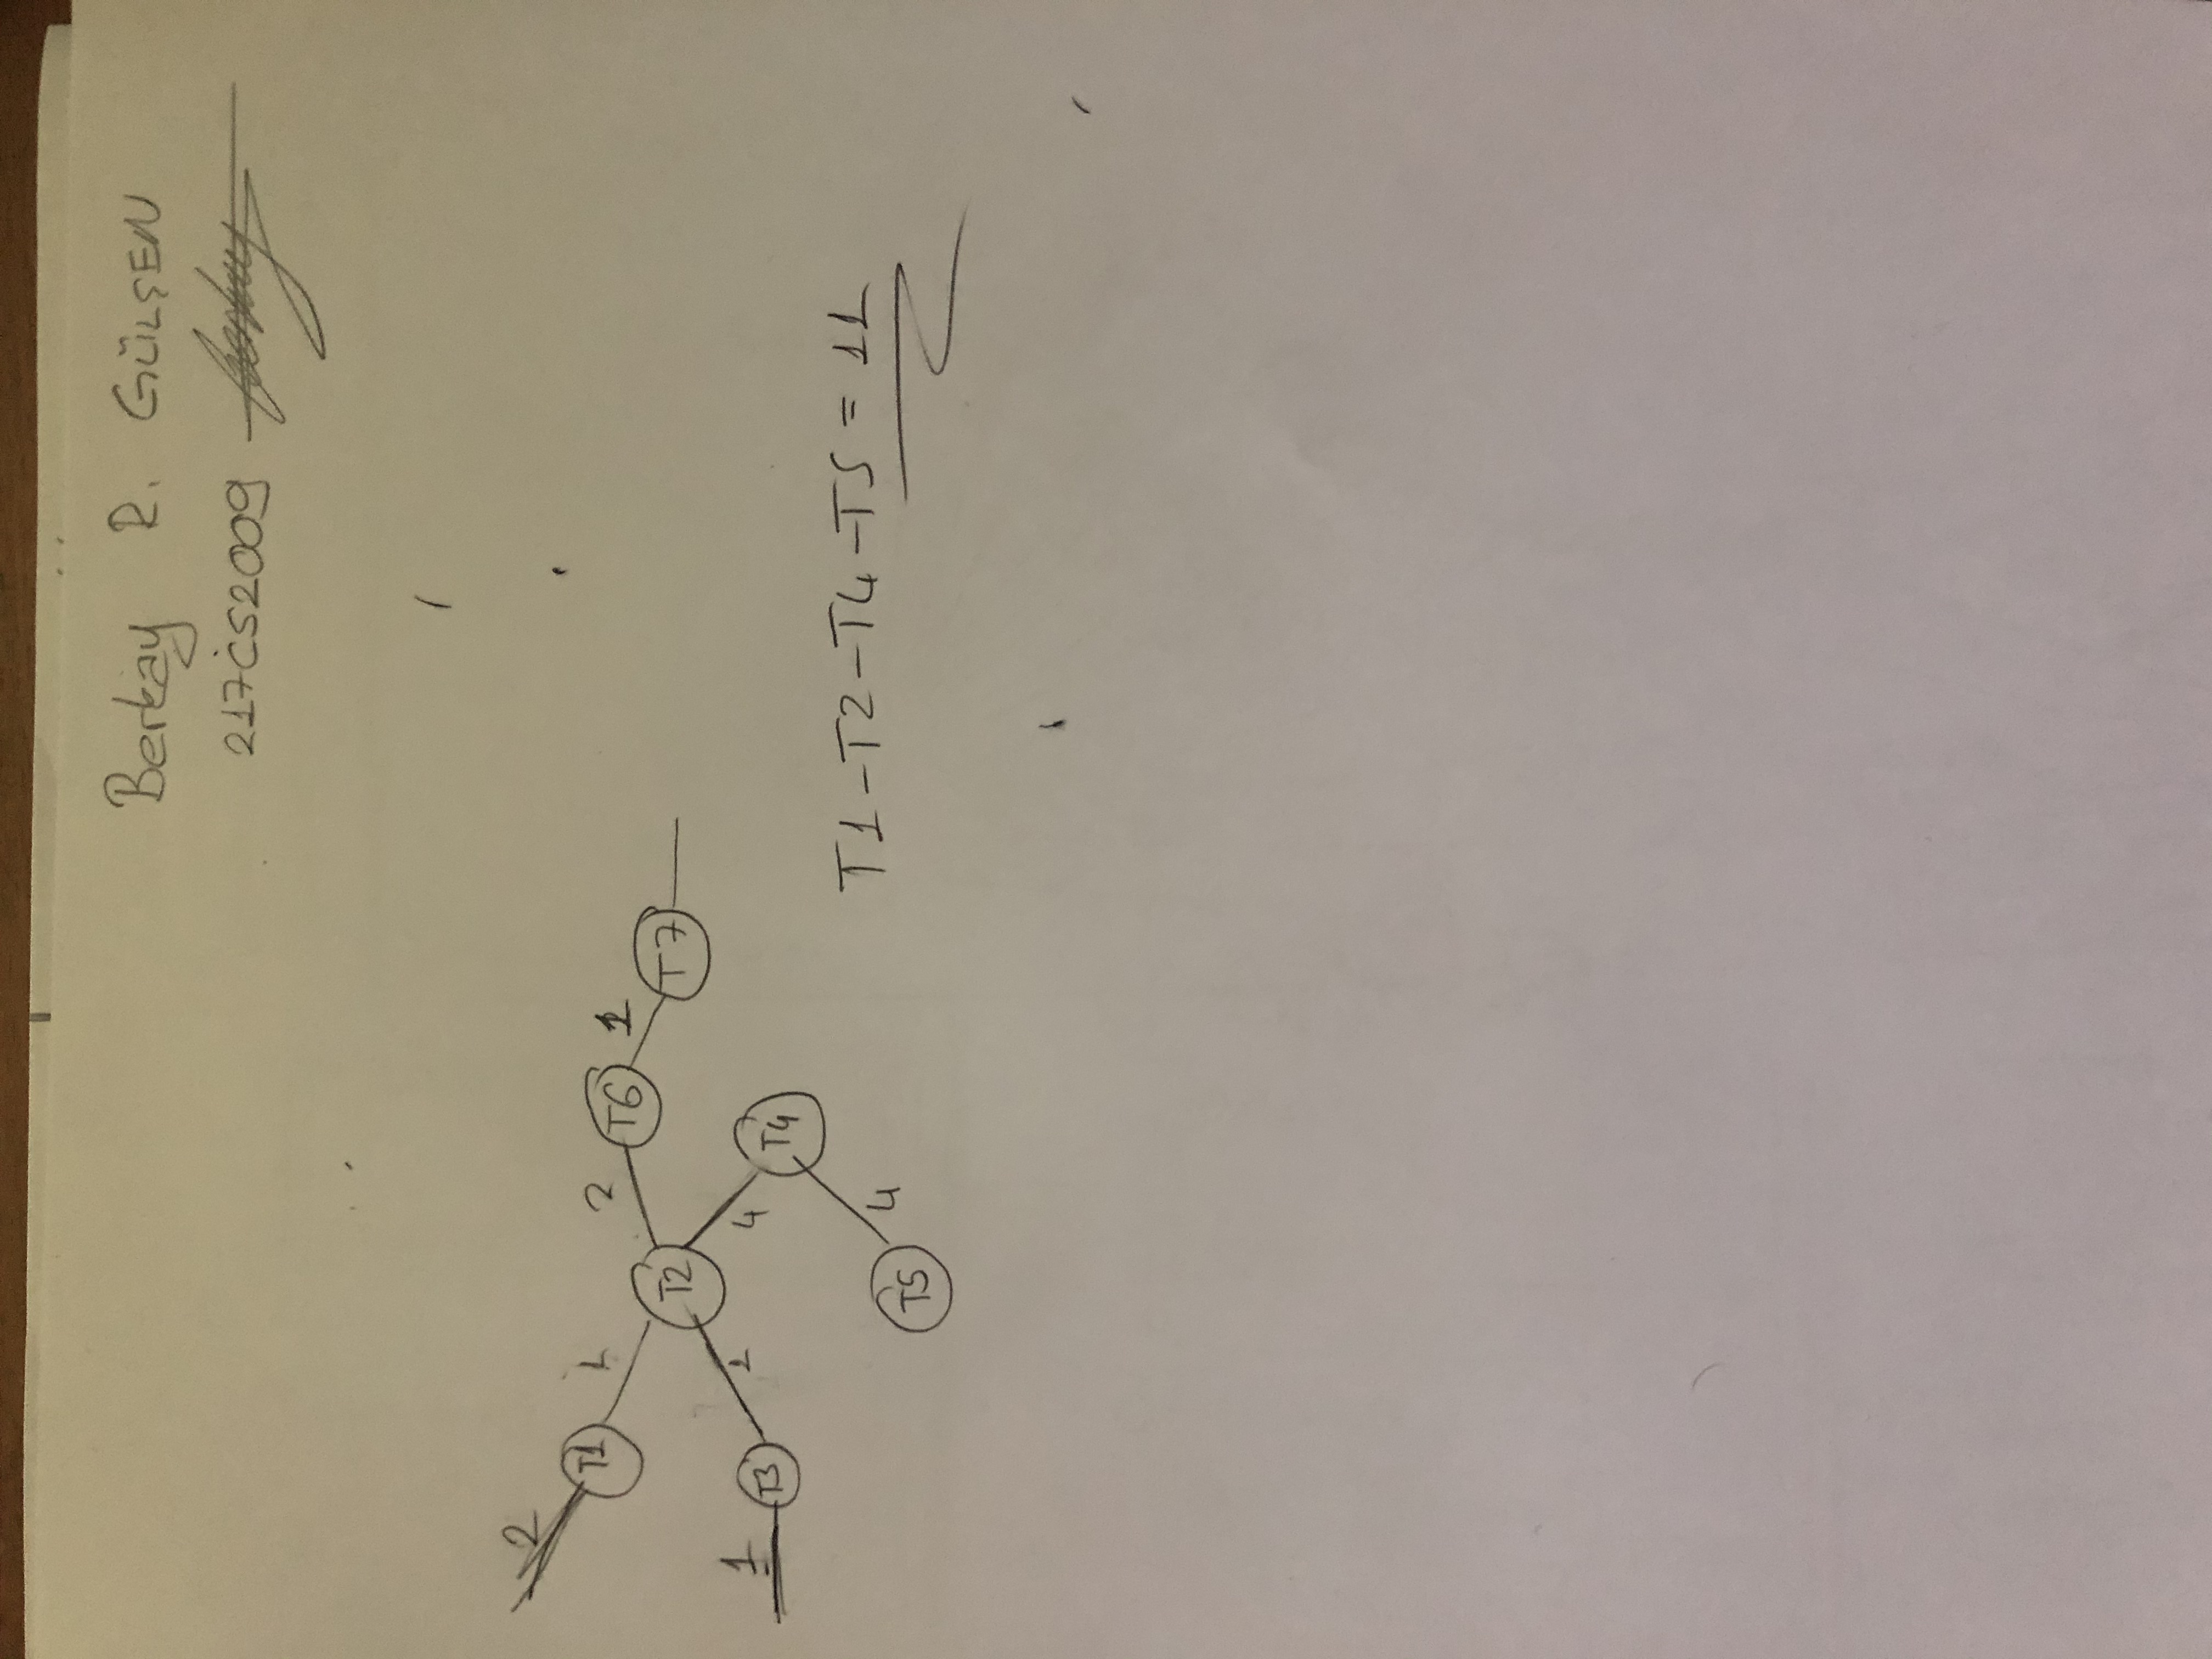 Berkay R. GÜLŞEN
217CS2009
2
T1 1
2 T6 1
T2 T7
1 T3 1
4 T4
T5 4
T1-T2-T4-T5 = 11